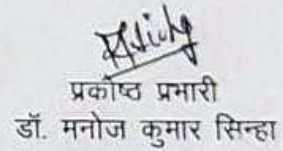 प्रकोष्ठ प्रभारी
डॉ. मनोज कुमार सिन्हा